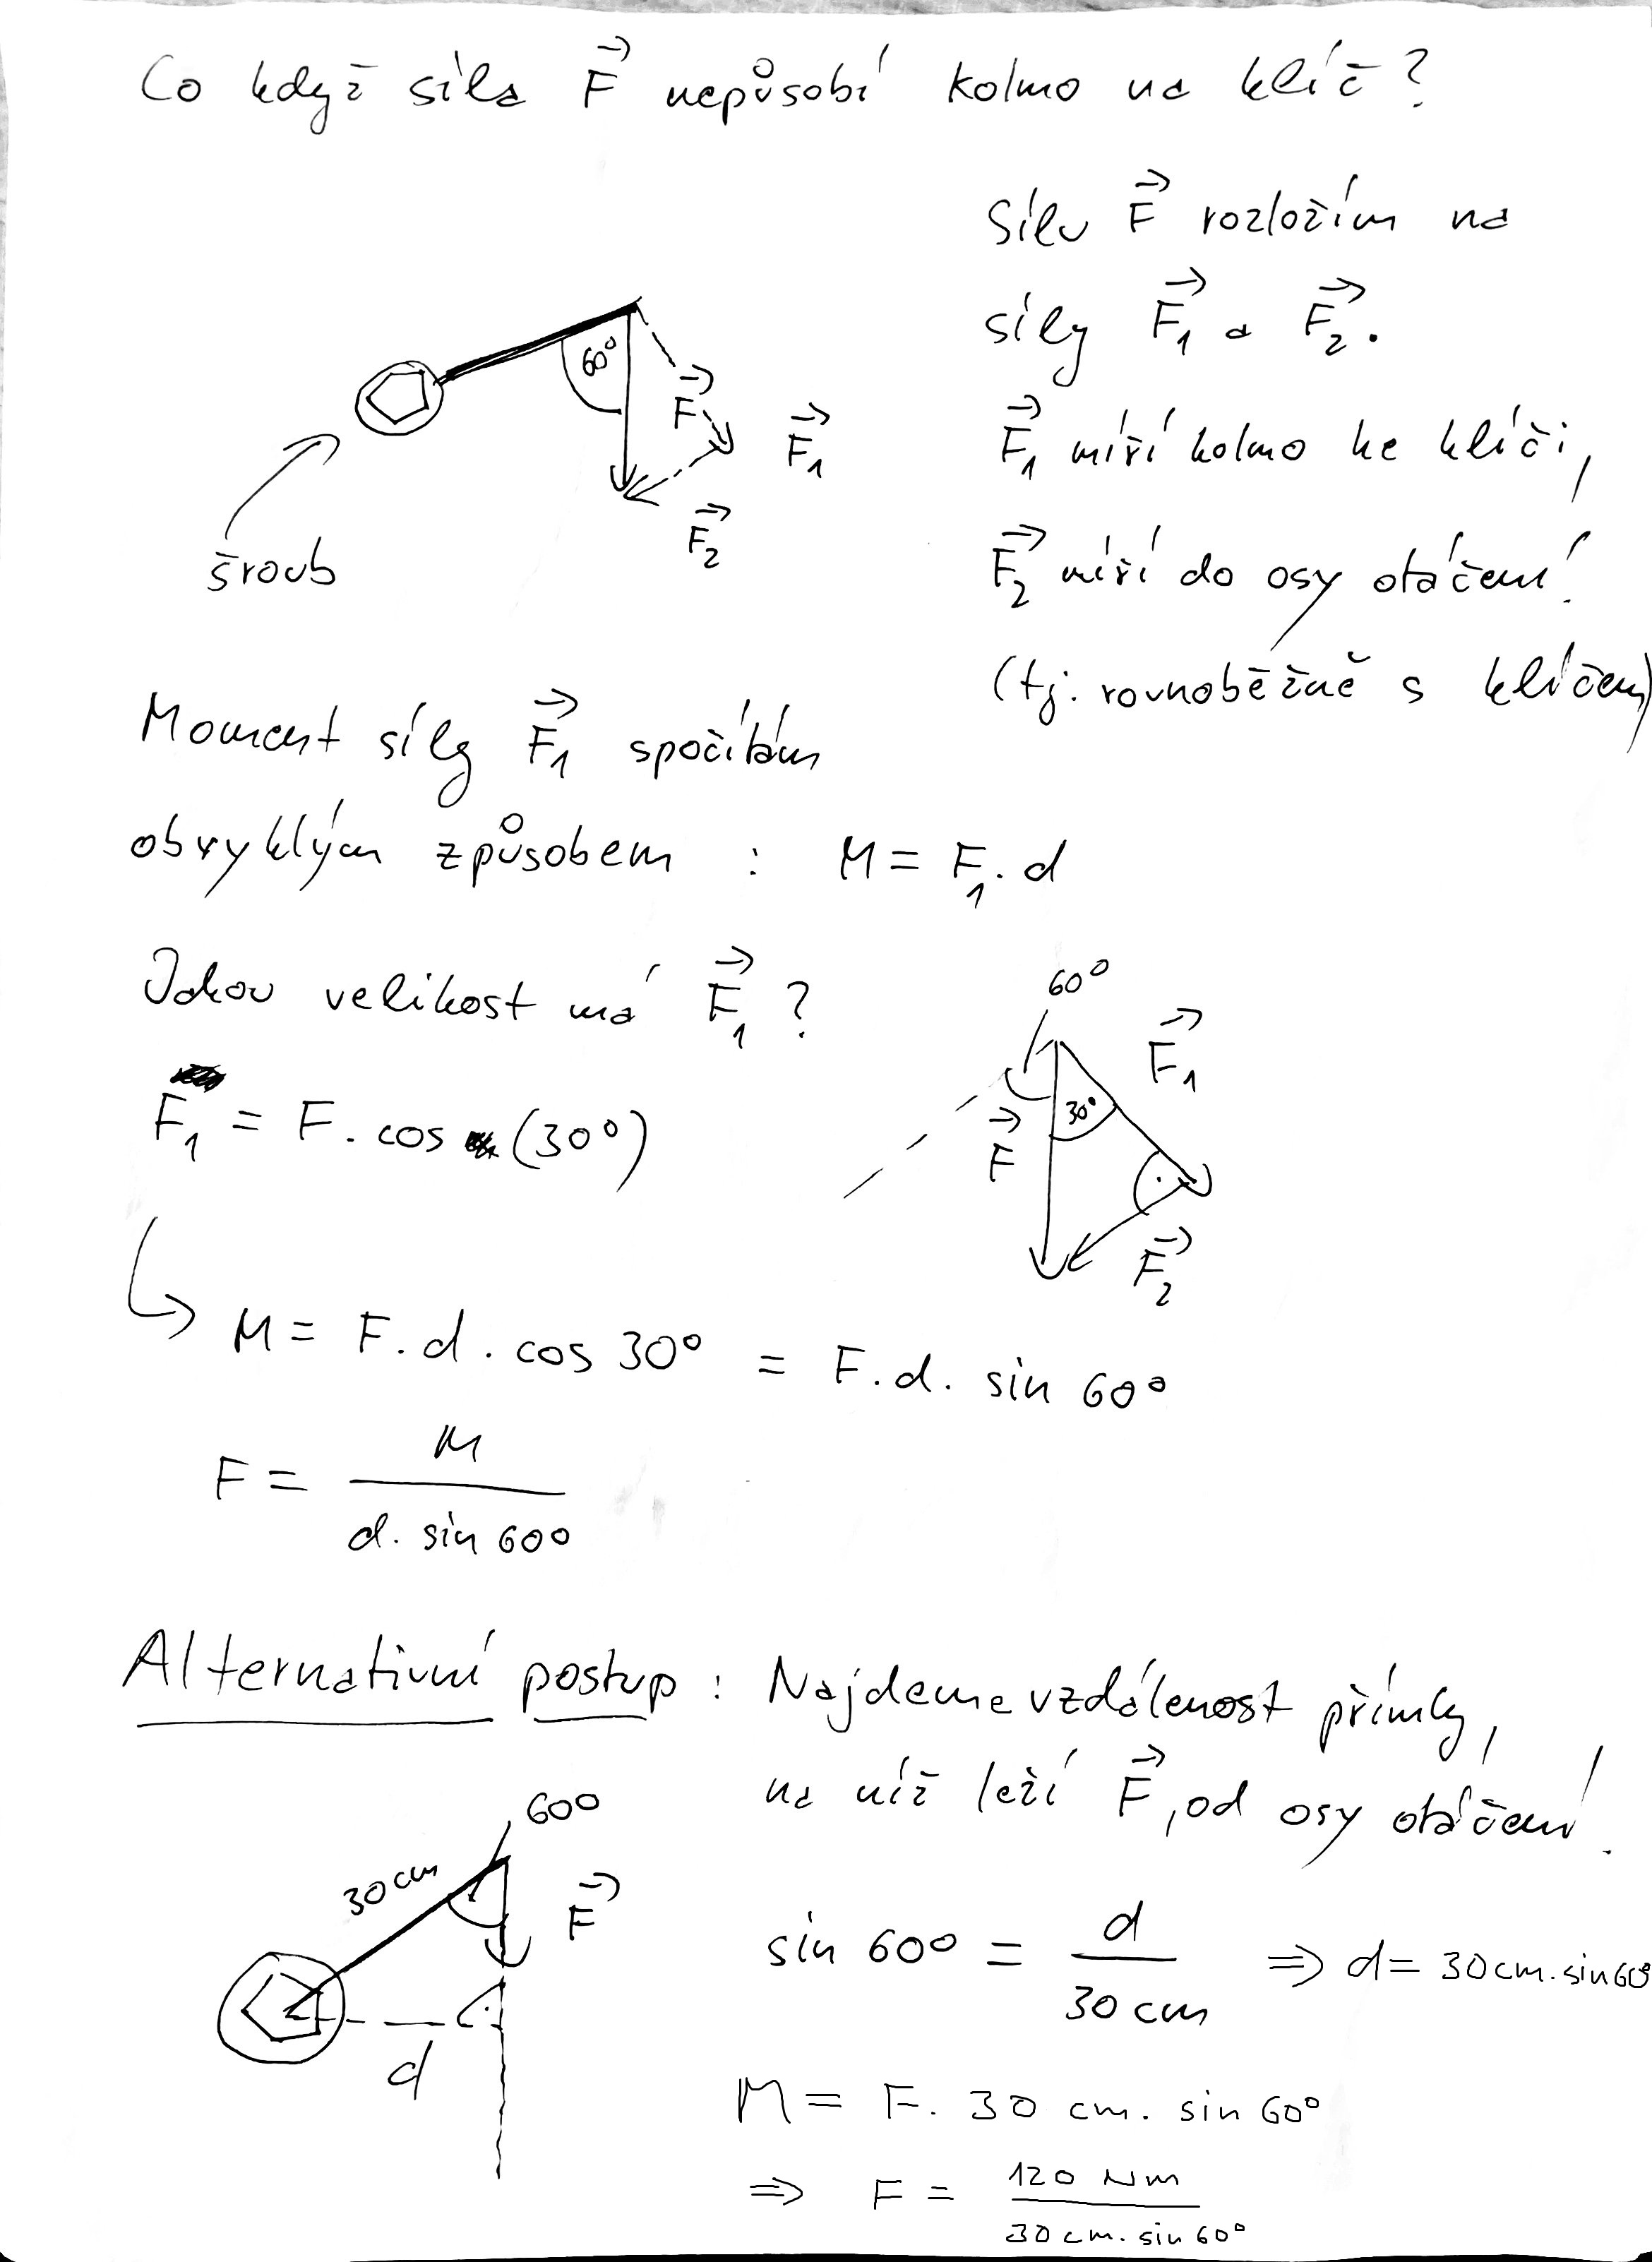 Co když síla F⃗ nepůsobí kolmo na klíč?
Sílu F⃗ rozložím na
síly F⃗₁ a F⃗₂.
60°
F⃗
F⃗₁
F⃗₁ míří kolmo ke klíči,
F⃗₂
F⃗₂ míří do osy otáčení
šroub
(tj. rovnoběžně s klíčem)
Moment síly F⃗₁ spočítám
obvyklým způsobem : M = F₁ . d
Jakou velikost má F⃗₁ ?
60°
F⃗₁
30°
F⃗
F⃗₂
F₁ = F . cos (30°)
M = F . d . cos 30° = F . d . sin 60°
F = M / d . sin 60°
Alternativní postup : Najdeme vzdálenost přímky,
na níž leží F⃗, od osy otáčení.
60°
30 cm
F⃗
d
sin 60° = d / 30 cm ⇒ d = 30 cm . sin 60°
M = F . 30 cm . sin 60°
⇒ F = 120 Nm / 30 cm . sin 60°